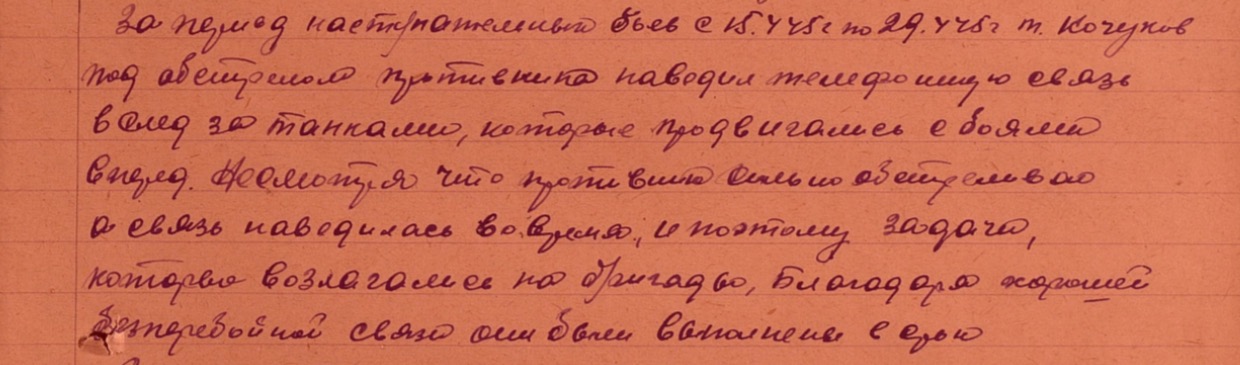 За период наступательных боев с 15.4.45г по 29.4.45г т. Кочунов
под обстрелом противника наводил телефонную связь
вслед за танками, которые продвигались с боями
вперед. Несмотря что противник сильно обстреливал
а связь наводилась вовремя, и поэтому задачи,
которые возлагались на бригады, благодаря хорошей
безперебойной связи они были выполнены в срок